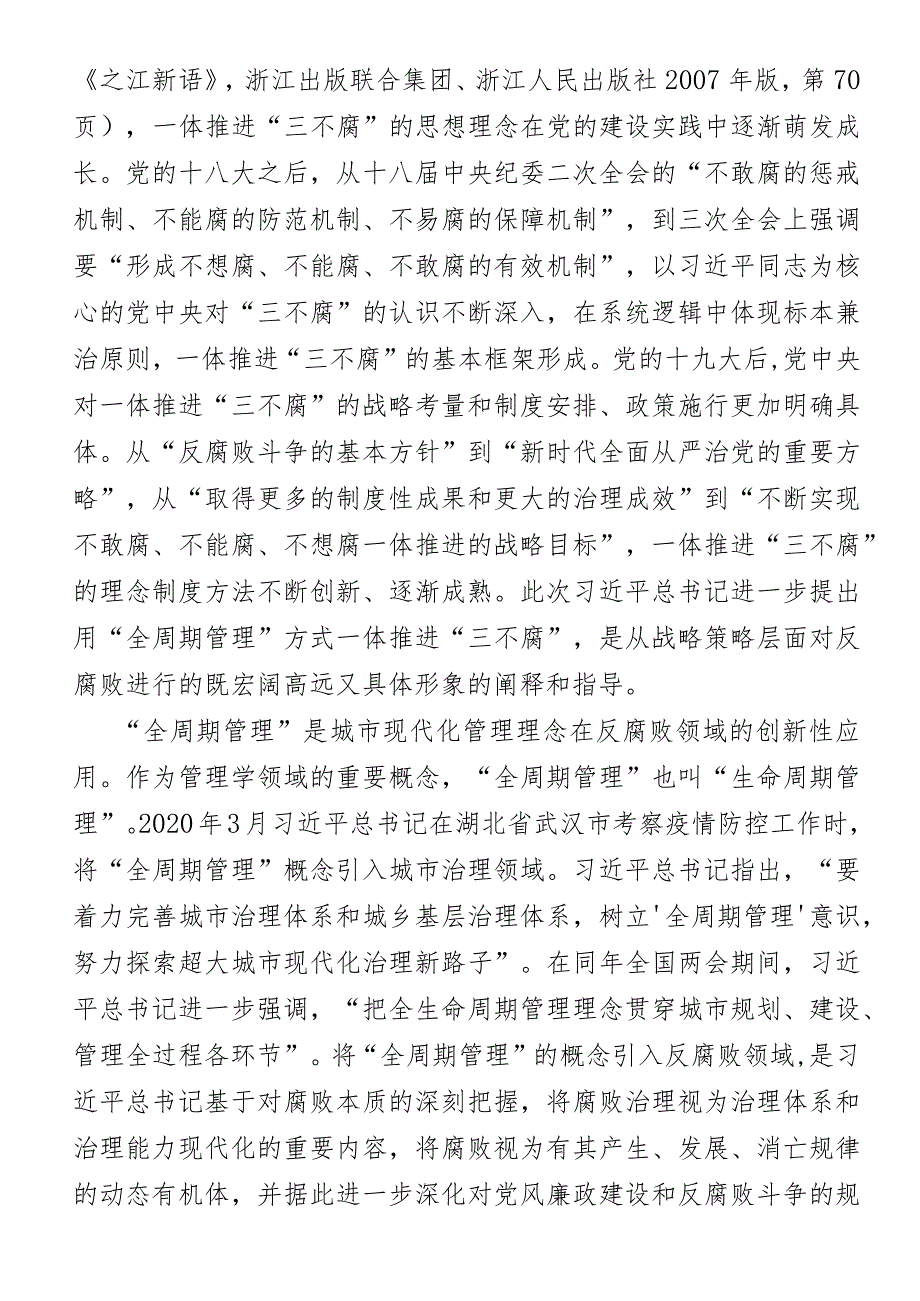 《之江新语》，浙江出版联合集团、浙江人民出版社 2007 年版，第 70
页），一体推进“三不腐”的思想理念在党的建设实践中逐渐萌发成
长。党的十八大之后，从十八届中央纪委二次全会的“不敢腐的惩戒
机制、不能腐的防范机制、不易腐的保障机制”，到三次全会上强调
要“形成不想腐、不能腐、不敢腐的有效机制”，以习近平同志为核
心的党中央对“三不腐”的认识不断深入，在系统逻辑中体现标本兼
治原则，一体推进“三不腐”的基本框架形成。党的十九大后,党中央
对一体推进“三不腐”的战略考量和制度安排、政策施行更加明确具
体。从“反腐败斗争的基本方针”到“新时代全面从严治党的重要方
略”，从“取得更多的制度性成果和更大的治理成效”到“不断实现
不敢腐、不能腐、不想腐一体推进的战略目标”，一体推进“三不腐”
的理念制度方法不断创新、逐渐成熟。此次习近平总书记进一步提出
用“全周期管理”方式一体推进“三不腐”，是从战略策略层面对反
腐败进行的既宏阔高远又具体形象的阐释和指导。
“全周期管理”是城市现代化管理理念在反腐败领域的创新性应
用。作为管理学领域的重要概念，“全周期管理”也叫“生命周期管
理”。2020 年 3 月习近平总书记在湖北省武汉市考察疫情防控工作时，
将“全周期管理”概念引入城市治理领域。习近平总书记指出，“要
着力完善城市治理体系和城乡基层治理体系，树立'全周期管理'意识，
努力探索超大城市现代化治理新路子”。在同年全国两会期间，习近
平总书记进一步强调，“把全生命周期管理理念贯穿城市规划、建设、
管理全过程各环节”。将“全周期管理”的概念引入反腐败领域,是习
近平总书记基于对腐败本质的深刻把握，将腐败治理视为治理体系和
治理能力现代化的重要内容，将腐败视为有其产生、发展、消亡规律
的动态有机体，并据此进一步深化对党风廉政建设和反腐败斗争的规